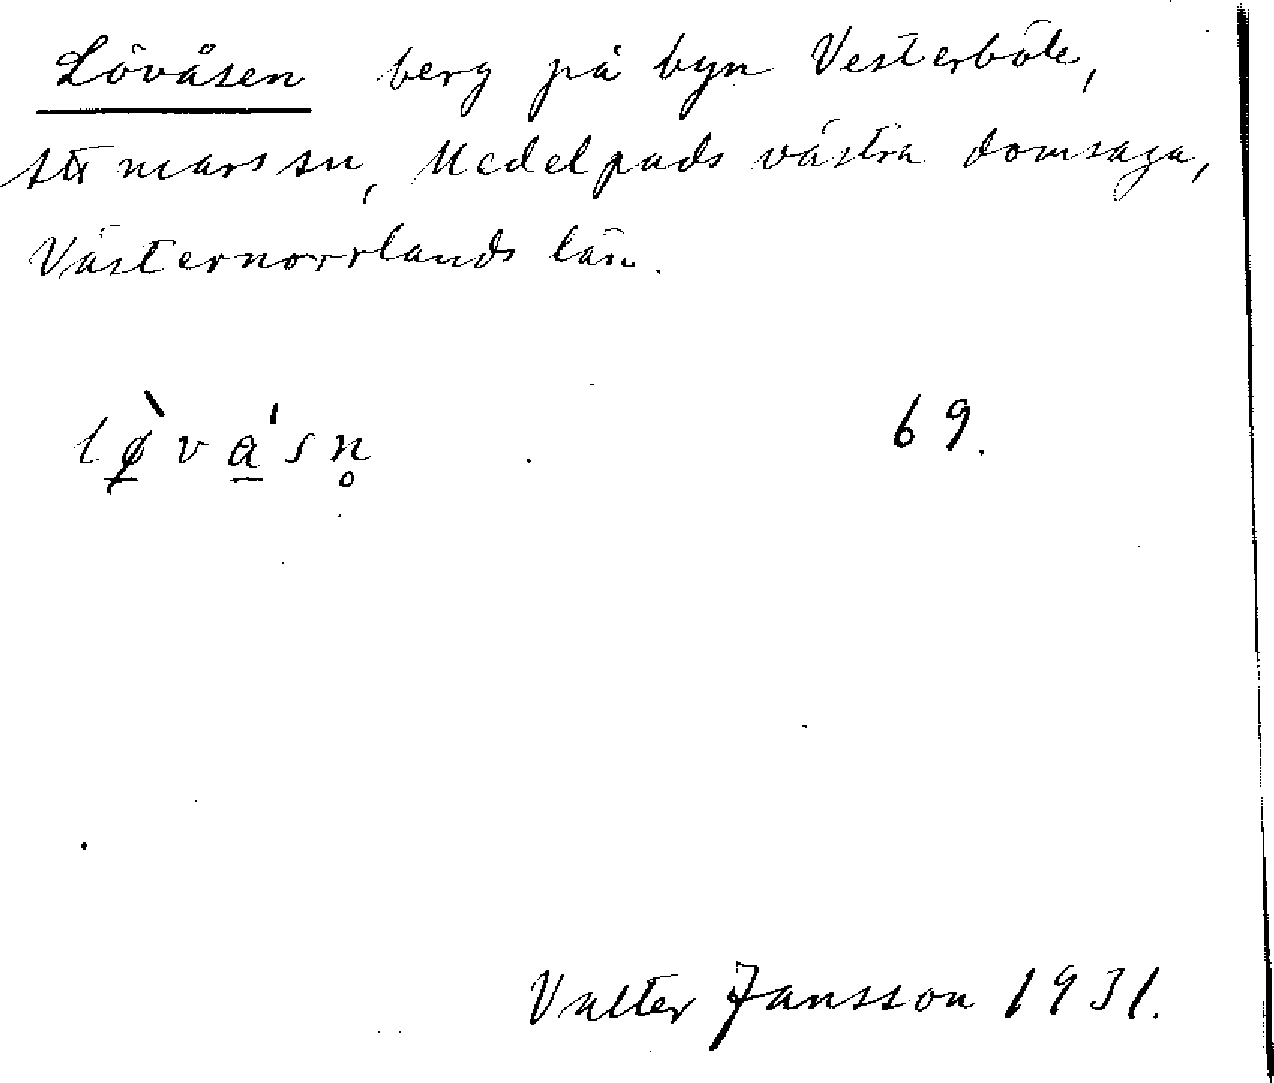 Lövåsen berg på byn Vesterböle,
Attmars sn, Medelpads västra domsaga,
Västernorrlands län.
lø̠̀va̠ˈsn̥ 69.
Valter Jansson 1931.